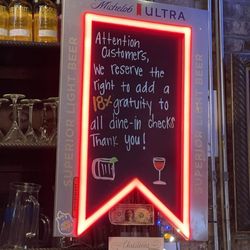 Michelob ULTRA
Attention
Customers,
We reserve the
right to add a
18% gratuity to
all dine-in checks
Thank you!
SUPERIOR LIGHT BEER
SUPERIOR LIGHT BEER